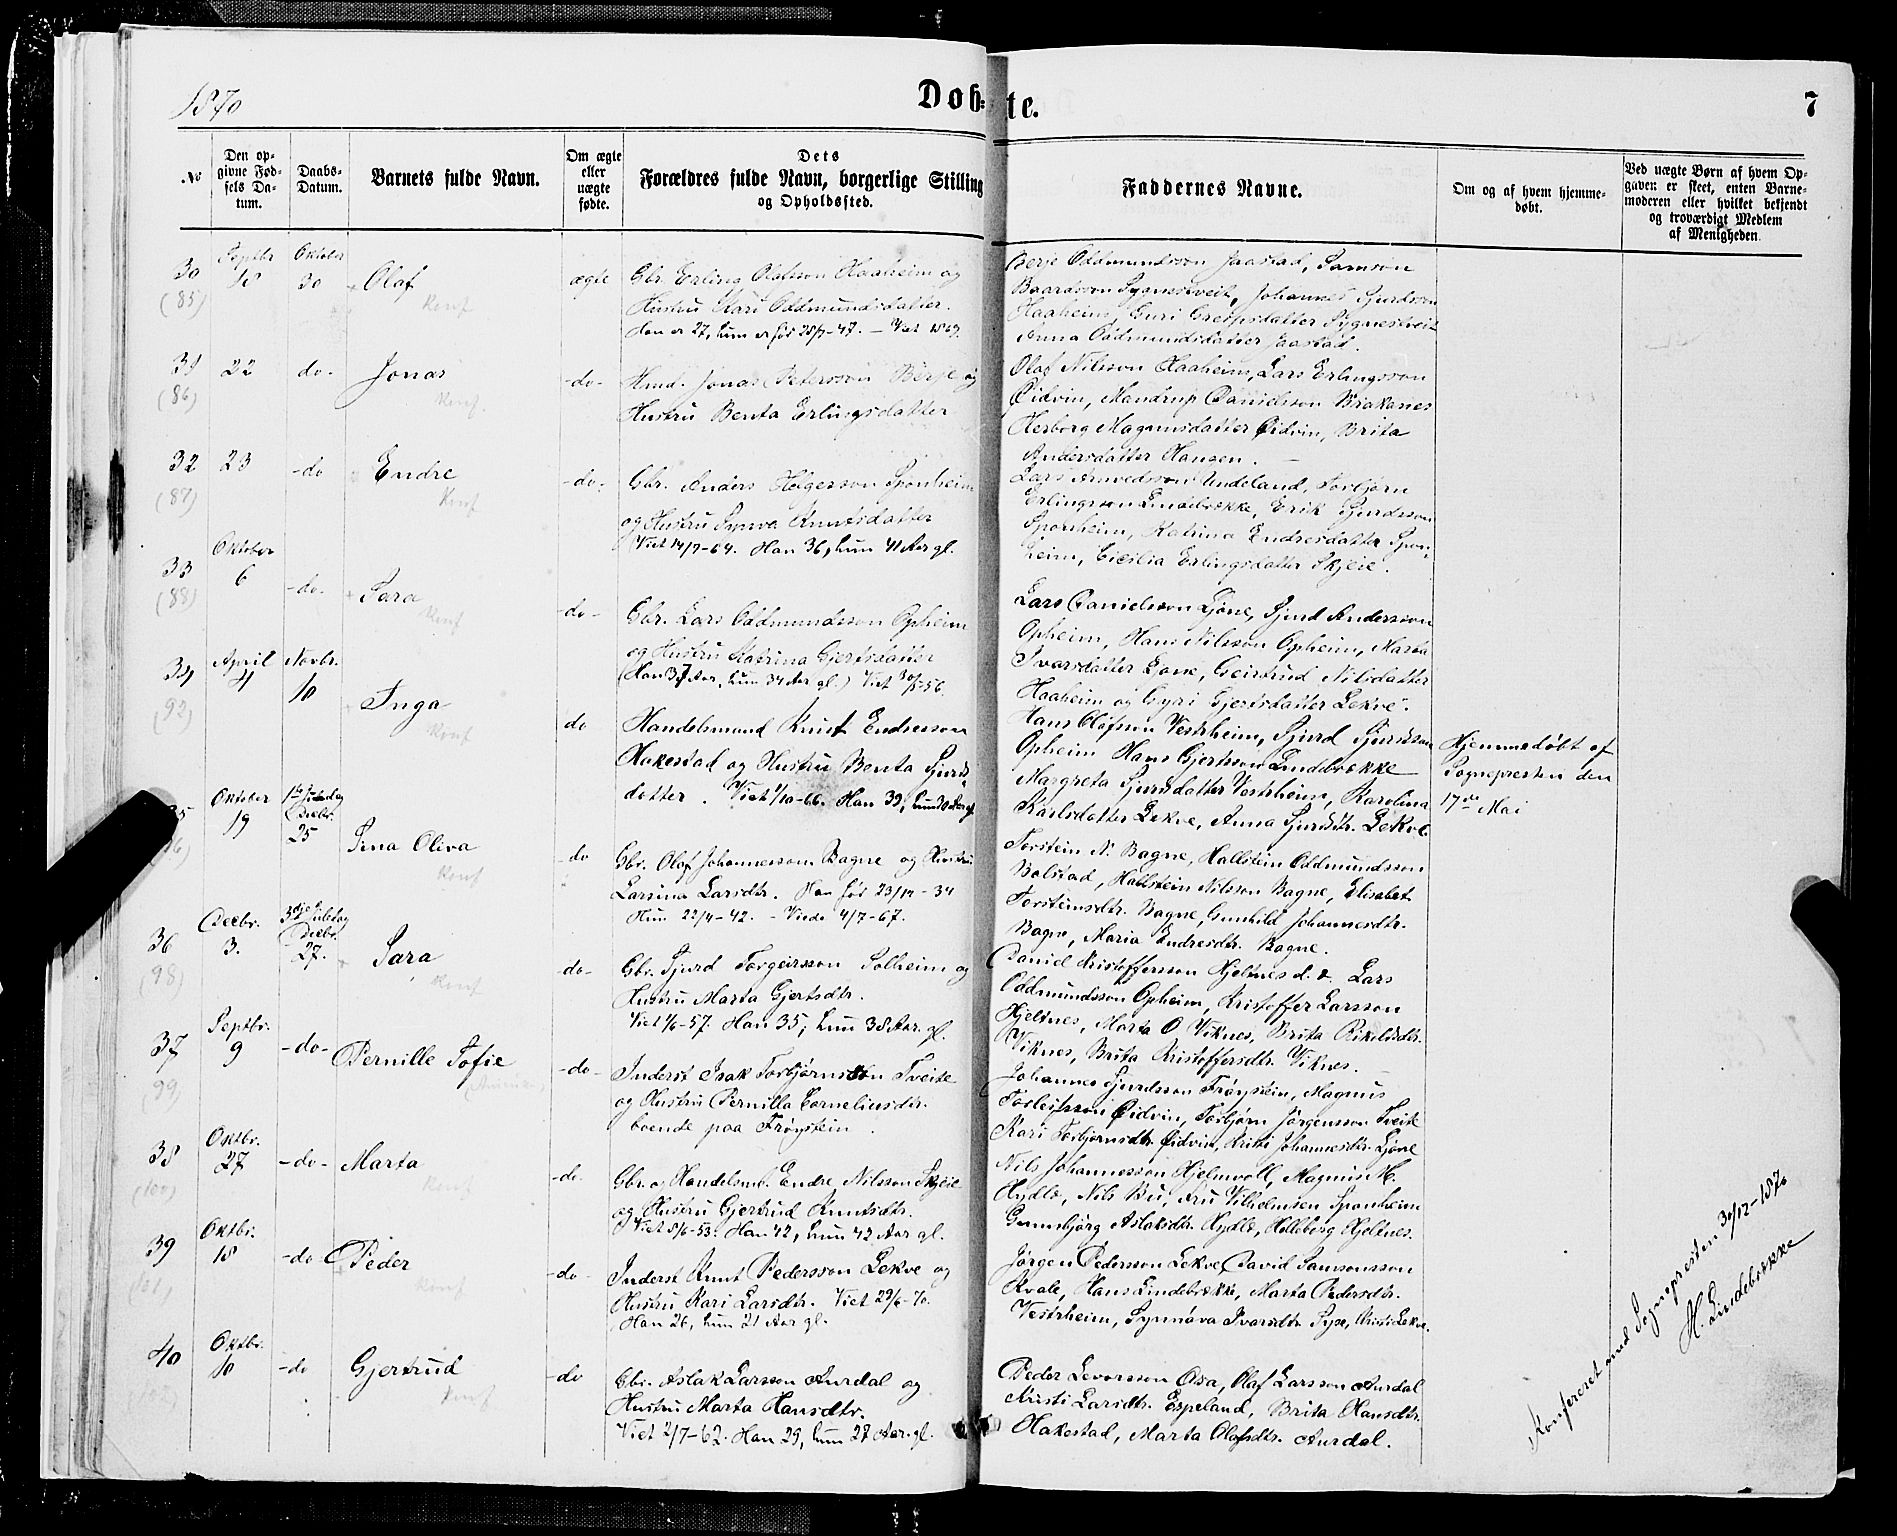 1870
Døbte.
7
No
Den opgivne Fødsels Datum.
Daabs-Datum.
Barnets fulde Navn.
Om ægte eller uægte fødte.
Dets Forældres fulde Navn, borgerlige Stilling og Opholdssted.
Faddernes Navne.
Om og af hvem hjemmedøbt.
Ved uægte Børn af hvem Opgaven er skeet, enten Barnemoderen eller hvilket bekjendt og troværdigt Medlem af Menigheden.
30 (85)
Septbr 18
Oktober 30
Olaf
Konf
ægte
Gbr. Erling Olafsson Haaheim og
Hustru Kari Oddmundsdatter.
Han er 27, hun er før 28/7-47. – Viet 1869.
Børje Oddmundsson Jaastad, Samson
Baardsson Sygnestveit, Johannes Sjurdsson
Haaheim, Guri Greipsdatter Sygnestveit
Anna Oddmundsdatter Jaastad.
31 (86)
22
do-
Jonas
Konf.
-do-
Hmd. Jonas Petersson Børje og
Hustru Benta Erlingsdatter
Olaf Nilsson Haaheim, Lars Erlingsson
Eidvin, Mandrup Danielsson Brakanes
Herborg Magnusdatter Eidvin, Brita
Andersdatter Haugen. –
32 (87)
23
-do
Endre
Konf
-do-
Gbr. Anders Helgesson Sponheim
og Hustru Synva Knutsdatter
Viet 14/7-64. Han 36, hun 41 Aar gl.
Lars Arnvedsson Undeland, Torbjørn
Erlingsson Lindebrække, Erik Sjurdsson
Sponheim, Katrina Endresdatter Spon-
heim, Cicilia Erlingsdatter Skjeie.
33 (88)
Oktober 6
-do-
Sara
Konf
-do-
Gbr. Lars Oddmundsson Opheim
og Hustru Katrina Gjertsdatter
(Han 37 Aar, hun 34 Aar gl.) Viet 30/5-56.
Lars Danielsson Ljone, Sjurd Andersson
Opheim, Hans Nilsson Opheim, Marta
Ivarsdatter Ljone, Geirtrud Nilsdatter
Haaheim og Gyri Gjertsdatter Lekve.
34 (92)
April 4
Novbr. 10
Inga
Konf
do
Handelsmand Knut Endresson
Hakestad og Hustru Benta Sjurds-
datter. Viet 1/10-66. Han 39, hun 30 Aar gl
Hans Olafson Vestrheim, Sjurd Sjurdsson
Opheim Hans Gjertsson Lindebrække
Margreta Sjursdatter Vestrheim, Karolina
Karlsdatter Lekve, Anna Sjursdtr. Lekve
Hjemmedøbt af
Sognepresten den
17de Mai
Oktober 19
1ste Juledag Decbr. 25
Sina Oliva
Konf
-do
Gbr. Olaf Johannesson Bagne og Hustru
Larsina Larsdtr. Han før 23/12-34
Hun 22/4-42. – Viede 4/7-67.
Torstein N. Bagne, Hallstein Oddmundsson
Bolstad, Hallstein Nilsson Bagne, Elisabet
Torsteinsdtr. Bagne, Gunhild Johannesdtr.
Bagne, Maria Endresdtr. Bagne.
36 (98)
Decbr. 3.
3dje Juledag Decbr. 27.
Sara
Konf
-do-
Gbr. Sjurd Torgeirsson Solheim og
Hustru Marta Gjertsdtr.
Viet 1/6-57. Han 35, hun 38 Aar. gl.
Daniel Kristoffersson Hjeltnes d. æ, Lars
Oddmundsson Opheim, Kristoffer Larsson
Hjeltnes, Marta O. Viknes, Brita Rikoldsdtr.
Viknes, Brita Kristoffersdtr. Viknes. –
37 (99)
Septbr. 9
-do-
Pernille Tofie
-do-
Inderst Isak Torbjørnsson Tveite
og Hustru Pernilla Korneliusdtr.
boende paa Frøystein.
Johannes Sjurdsson Frøystein, Magnus
Torleifsson Eidvin, Torbjørn Jørgensson Tveite
Kari Torbjørnsdtr. Eidvin, Kristi Johannesdtr. Ljone
38 (100)
Oktbr. 27
-do-
Marta
Konf
-do-
Gbr. og Handelsmd. Endre Nilsson Skjeie
og Hustru Gjertrud Knutsdtr.
Viet 5/6-53. Han 42, hun 42 Aar gl.
Nils Johannesson Hjelmvoll, Magnus M.
Hydle, Nils Bu, Fru Vilhelmsen Sponheim
Gunnbjørg Aslaksdtr. Hydle, Holleborg Hjeltnes.
39
Oktbr. 18
-do
Peder
Konf
-do-
Inderst Knut Pedersson Lekve og
Hustru Kari Larsdtr. Viet 29/6-70.
Han 26, hun 21 Aar gl.
Jørgen Pedersson Lekve, David Samsonsson
Kvale, Hans Lindebrække, Marta Pedersdtr.
Vestrheim, Synnøva Ivarsdtr Syse, Kristi Lekve.
40
Oktbr. 10
-do
Gjertrud
Konf
-do
Gbr. Aslak Larsson Aurdal og
Hustru Marta Hansdtr.
Viet 2/7-62. Han 29, hun 28 Aar gl.
Peder Levorsson Osa, Olaf Larsson Aurdal
Kristi Larsdtr. Espeland, Brita Hansdtr.
Hakestad, Marta Olafsdtr. Aurdal.
Konfereret med Sognepresten 30/12-1870
H. Lindebrække